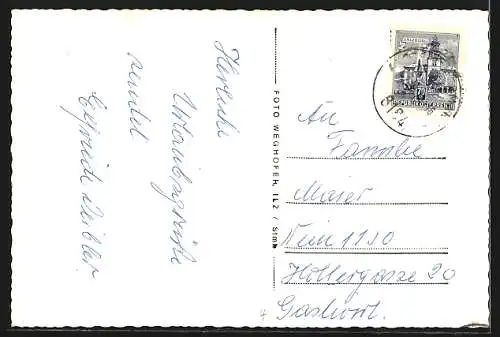 Herzliche
Urlaubsgrüße
sendet
Elfriede
FOTO WEGHOFER, ILZ / Stmk
REPUBLIK ÖSTERREICH
An
Familie
Maier
Wien 1110
Hollergasse 20
Gastwirt.
4